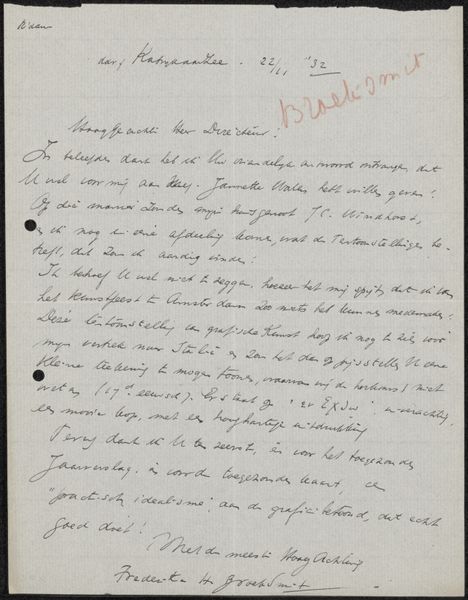 A'dam
Katwijk aan Zee. 22/11 '32
Broeksmit
Hooggeachte Heer Directeur!
In beleefden dank heb ik Uw vriendelijk antwoord ontvangen dat
U wel voor mij aan Jannette Walen hebt willen geven!
Op die manier zouden mijn J.C. Windhorst,
en ik nog in één afdeeling komen, wat de Tentoonstellingen be-
treft, dat zou ik aardig vinden!
Ik behoef U wel niet te zeggen, hoezeer het mij spijt dat ik van
het Kunstfeest te Amsterdam zoo niets heb kunnen medemaken!
Deze tentoonstelling van grafische Kunst hoop ik nog te zien voor
mijn vertrek naar Italië en zou het dan op prijs stellen U eene
kleine teekening te mogen toonen, waarvan mij de herkomst niet
(17d eeuwsch). Er staat op
een mooie kop, met een hooghartige uitdrukking
Terug dank ik U ten zeerste, én voor het toegezonden
Jaarverslag én voor de toegezonden kaart, en
"practisch idealisme" aan de grafici betoond, dat echt
goed doet!
Met de meeste Hoogachting
Frederika H Broeksmit